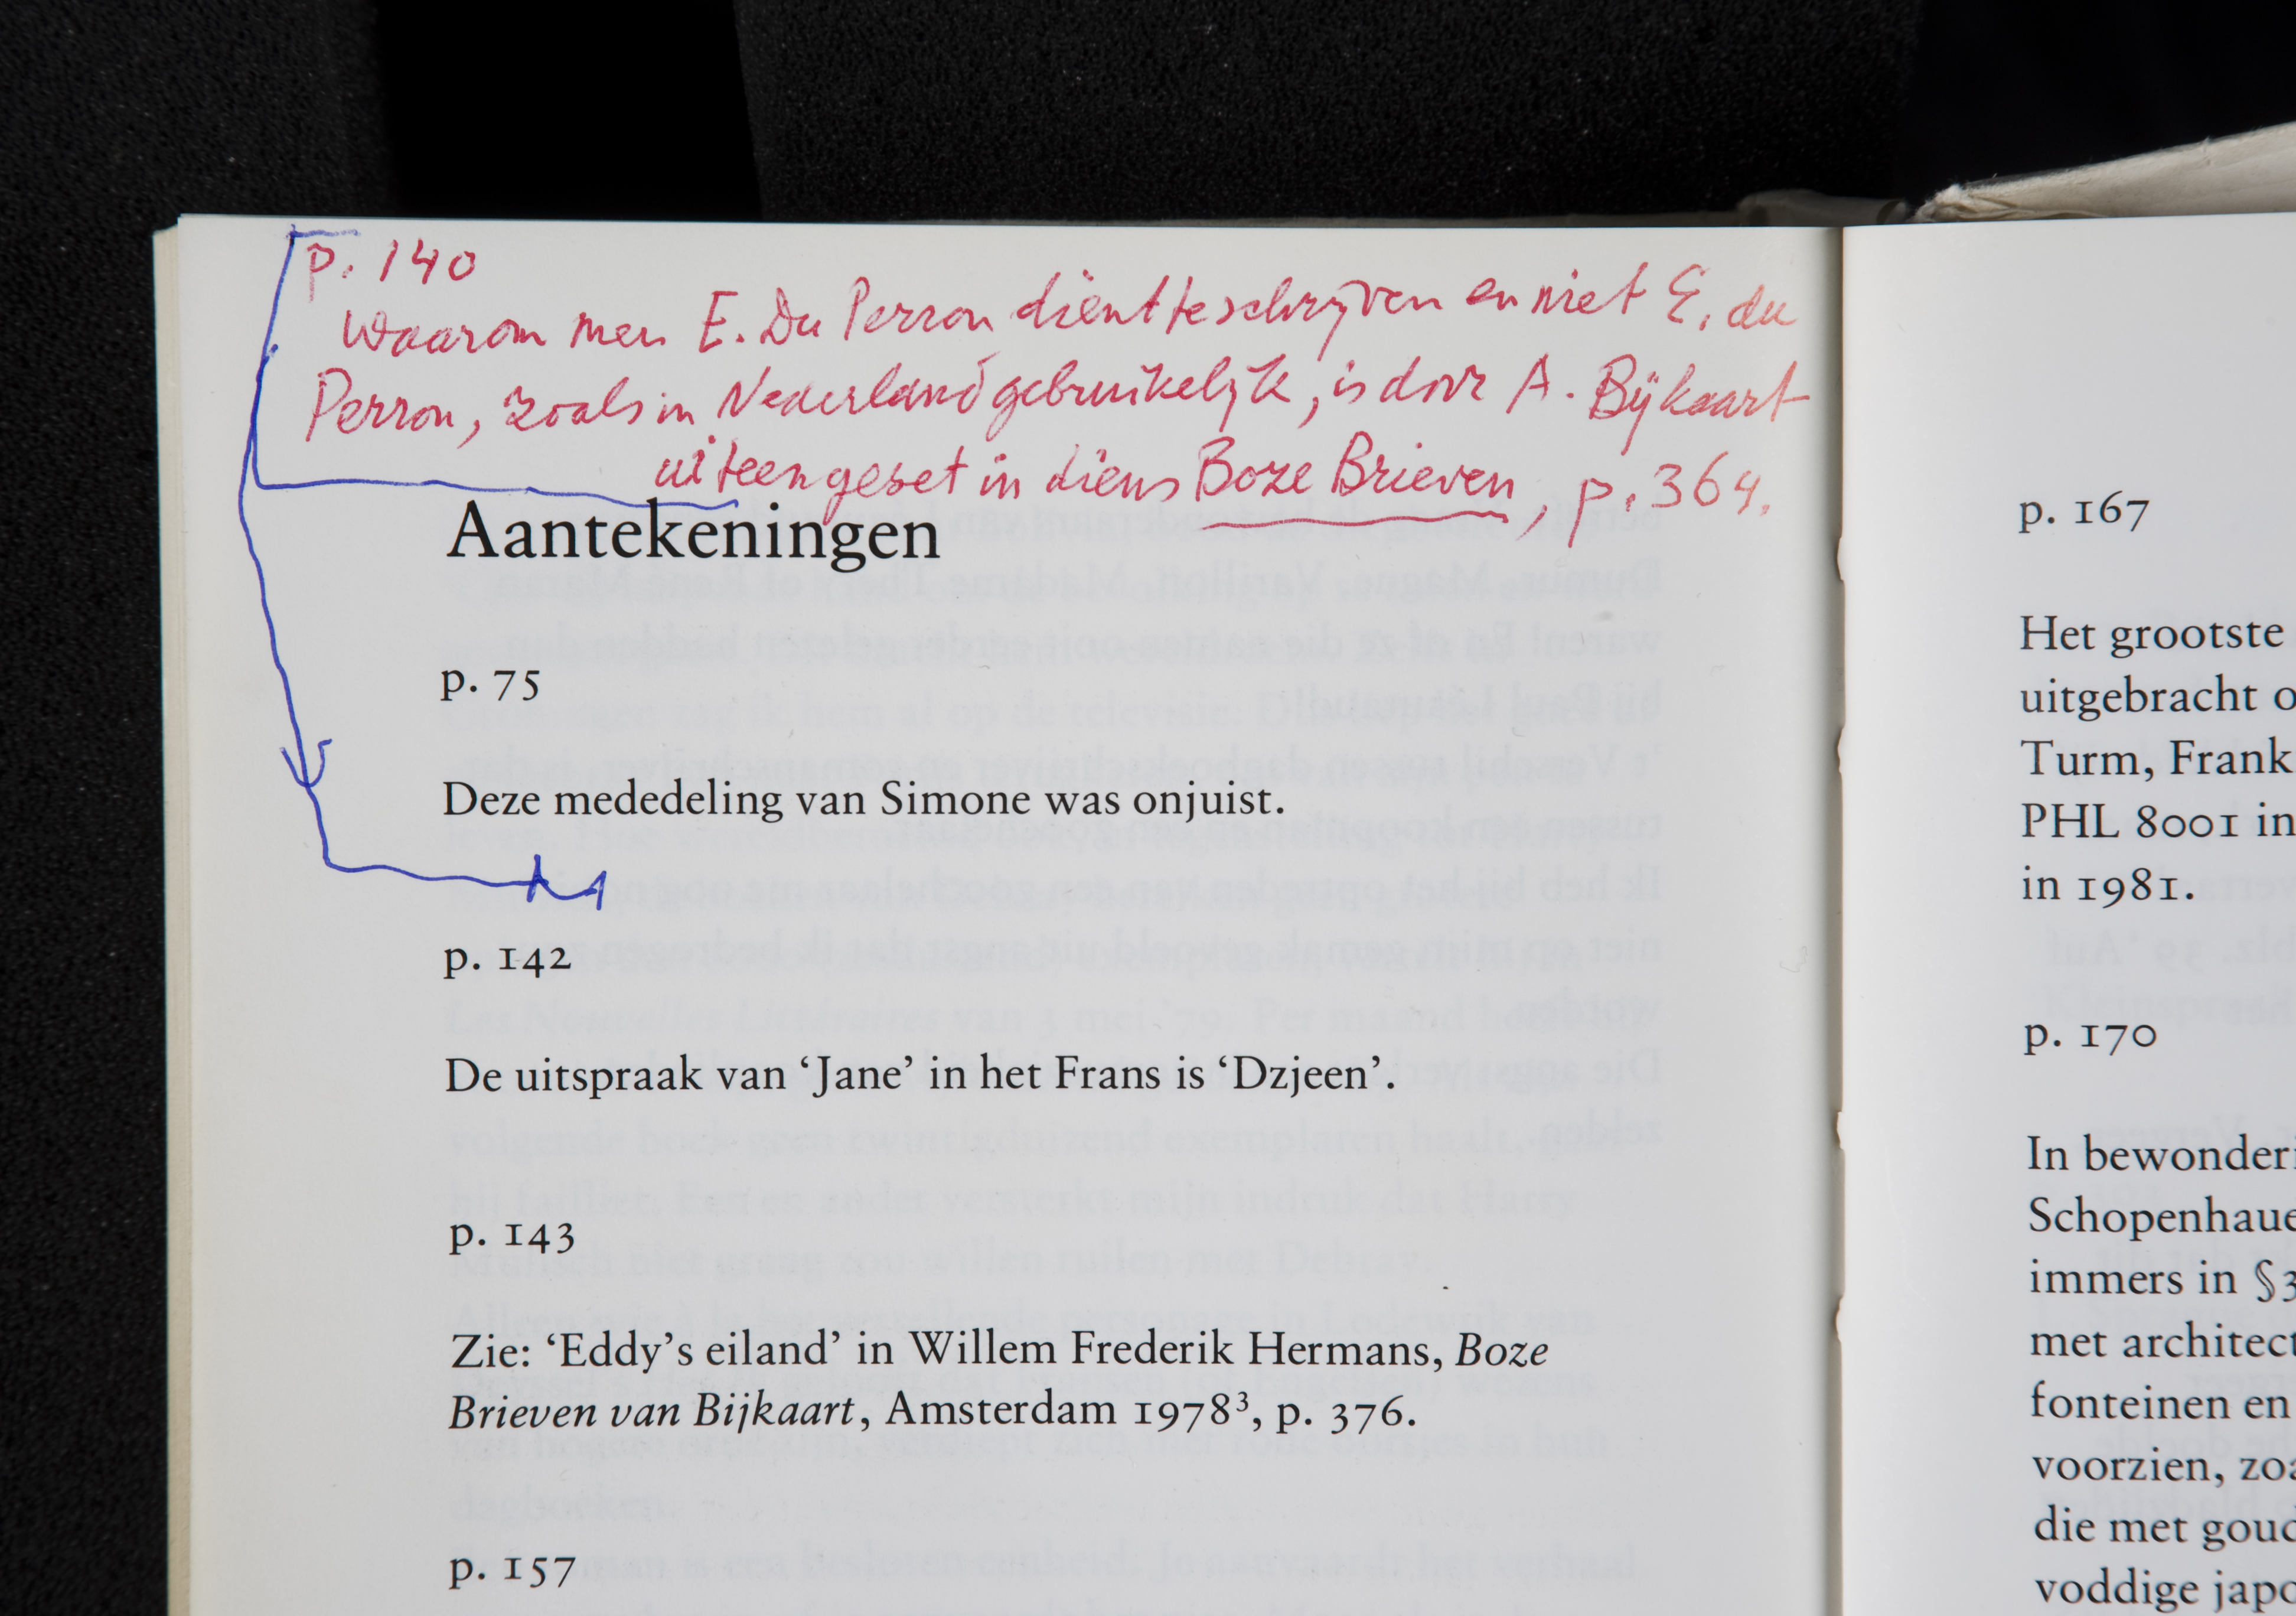 p. 140
Waarom men E. Du Perron dient te schrijven en niet E. du
Perron, zoals in Nederland gebruikelijk, is door A. Bijkaart
uiteengeset in diens Boze Brieven, p. 364.
Aantekeningen
p. 75
Deze mededeling van Simone was onjuist.
p. 142
De uitspraak van ‘Jane’ in het Frans is ‘Dzjeen’.
p. 143
Zie: ‘Eddy’s eiland’ in Willem Frederik Hermans, Boze
Brieven van Bijkaart, Amsterdam 1978³, p. 376.
p. 157
p. 167
Het grootste
uitgebracht o
Turm, Frank
PHL 8001 in
in 1981.
p. 170
In bewonderi
Schopenhaue
immers in §3
met architect
fonteinen en
voorzien, zoa
die met goud
voddige japo